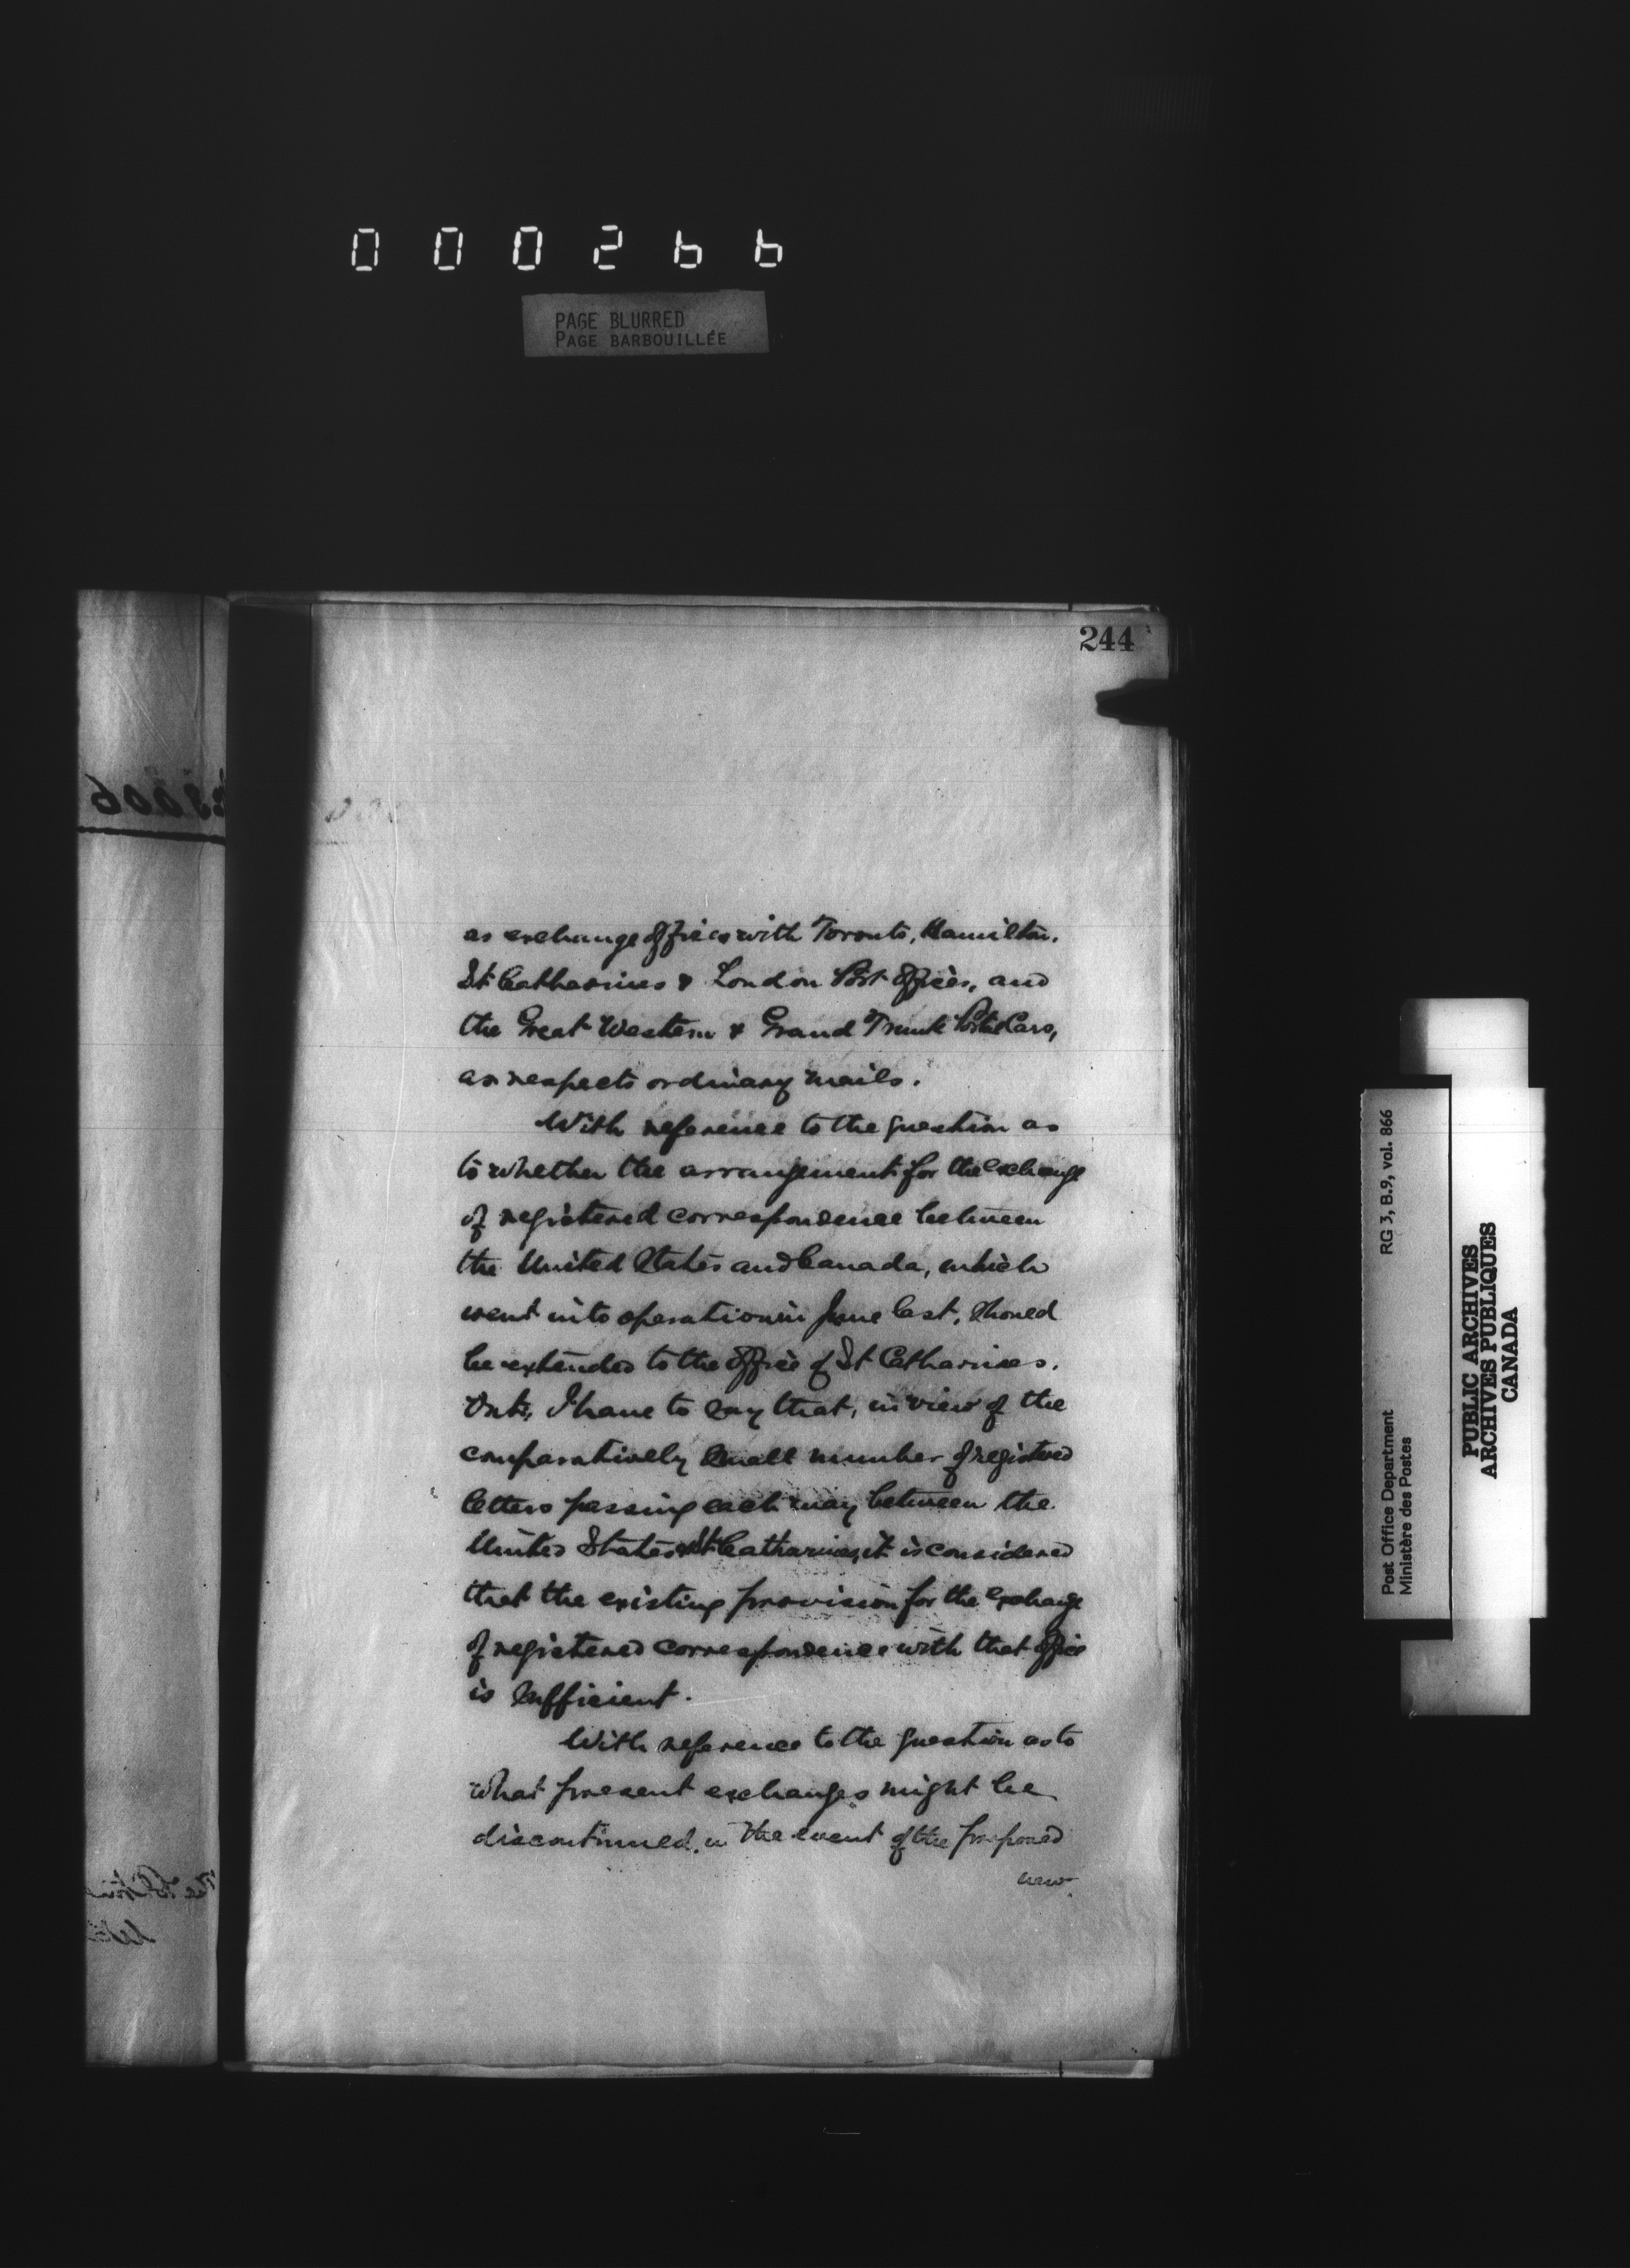 000266
PAGE BLURRED
PAGE BARBOUILLÉE
244
as exchange offices with Toronto, Hamilton,
St Catharines & London Post Offices, and
the Great Western & Grand Trunk Postal Cars,
as respects ordinary mails.
With reference to the question as
to whether the arrangement for the exchange
of registered correspondence between
the United States and Canada, which
went into operation in June last, should
be extended to the office of St Catharines,
Ont., I have to say that, in view of the
comparatively small number of registered
letters passing each way between the
United States & St Catharines, it is considered
that the existing provision for the exchange
of registered correspondence with that office
is sufficient.
With reference to the question as to
what present exchanges might be
discontinued, in the event of the proposed
new
Post Office Department
Ministère des Postes
RG 3, B.9, vol. 866
PUBLIC ARCHIVES
ARCHIVES PUBLIQUES
CANADA